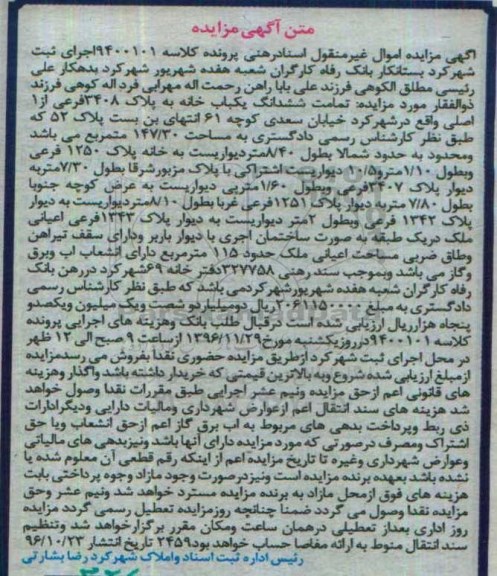 متن آگهی مزایده
آگهی مزایده اموال غیرمنقول اسنادرهنی پرونده کلاسه ۹۴۰۰۱۰۱اجرای ثبت
شهرکرد بستانکار بانک رفاه کارگران شعبه هفده شهریور شهرکرد بدهکار علی
رئیسی مطلق الکوهی فرزند علی بابا راهن رحمت اله مهرابی فرد اله کوهی فرزند
ذوالفقار مورد مزایده: تمامت ششدانگ یکباب خانه به پلاک ۳۴۰۸فرعی از۱
اصلی واقع درشهرکرد خیابان سعدی کوچه ۶۱ انتهای بن بست پلاک ۵۲ که
طبق نظر کارشناس رسمی دادگستری به مساحت ۱۴۷/۳۰ مترمربع می باشد
ومحدود به حدود شمالا بطول ۸/۴۰متردیواریست به خانه پلاک ۱۲۵۰ فرعی
وبطول ۱/۱۰مترو۱۰/۵ دیواریست اشتراکی با پلاک مزبورشرقا بطول ۷/۳۰متربه
دیوار پلاک ۳۴۰۷فرعی وبطول ۱/۶۰مترپی دیواریست به عرض کوچه جنوبا
بطول ۷/۸۰ متربه دیوار پلاک ۱۲۵۱فرعی غربا بطول ۸/۱۰متردیواریست به دیوار
پلاک ۱۳۴۲ فرعی وبطول ۲متر دیواریست به دیوار پلاک ۱۳۴۳فرعی اعیانی
ملک دریک طبقه به صورت ساختمان اجری با دیوار باربر ودارای سقف تیرآهن
وطاق ضربی مساحت اعیانی ملک حدود ۱۱۵ مترمربع دارای انشعاب اب وبرق
وگاز می باشد وبموجب سند رهنی ۳۲۷۷۵۸دفتر خانه ۶۹شهرکرد دررهن بانک
رفاه کارگران شعبه هفده شهریورشهرکردمی باشد که طبق نظر کارشناس رسمی
دادگستری به مبلغ ریال دومیلیاردو شصت ویک میلیون ویکصدو
پنجاه هزارریال ارزیابی شده است درقبال طلب بانک وهزینه های اجرایی پرونده
کلاسه ۹۴۰۰۱۰۱درروزیکشنبه مورخ۱۳۹۶/۱۱/۲۹ ازساعت ۹ صبح الی ۱۲ ظهر
در محل اجرای ثبت شهرکرد ازطریق مزایده حضوری نقدا بفروش می رسدمزایده
ازمبلغ ارزیابی شده شروع وبه بالاترین قیمتی که خریدار داشته باشد واگذار وهزینه
های قانونی اعم ازحق مزایده ونیم عشر اجرایی طبق مقررات نقدا وصول خواهد
شد هزینه های سند انتقال اعم ازعوارض شهرداری ومالیات دارایی ودیگرادارات
ذی ربط وپرداخت بدهی های مربوط به اب برق گاز اعم ازحق انشعاب ویا حق
اشتراک ومصرف درصورتی که مورد مزایده دارای آنها باشد ونیزبدهی های مالیاتی
وعوارض شهرداری وغیره تا تاریخ مزایده اعم از اینکه رقم قطعی آن معلوم شده یا
نشده باشد بعهده برنده مزایده است ونیزدرصورت وجود مازاد وجوه پرداختی بابت
هزینه های فوق ازمحل مازاد به برنده مزایده مسترد خواهد شد ونیم عشر وحق
مزایده نقدا وصول می گردد ضمنا چنانچه روزمزایده تعطیل رسمی گردد مزایده
روز اداری بعداز تعطیلی درهمان ساعت ومکان مقرر برگزارخواهد شد وتنظیم
سند انتقال منوط به ارائه مفاصا حساب خواهد بود۲۴۵۹ تاریخ انتشار ۹۶/۱۰/۲۳
رئیس اداره ثبت اسناد واملاک شهرکرد رضا بشارتی